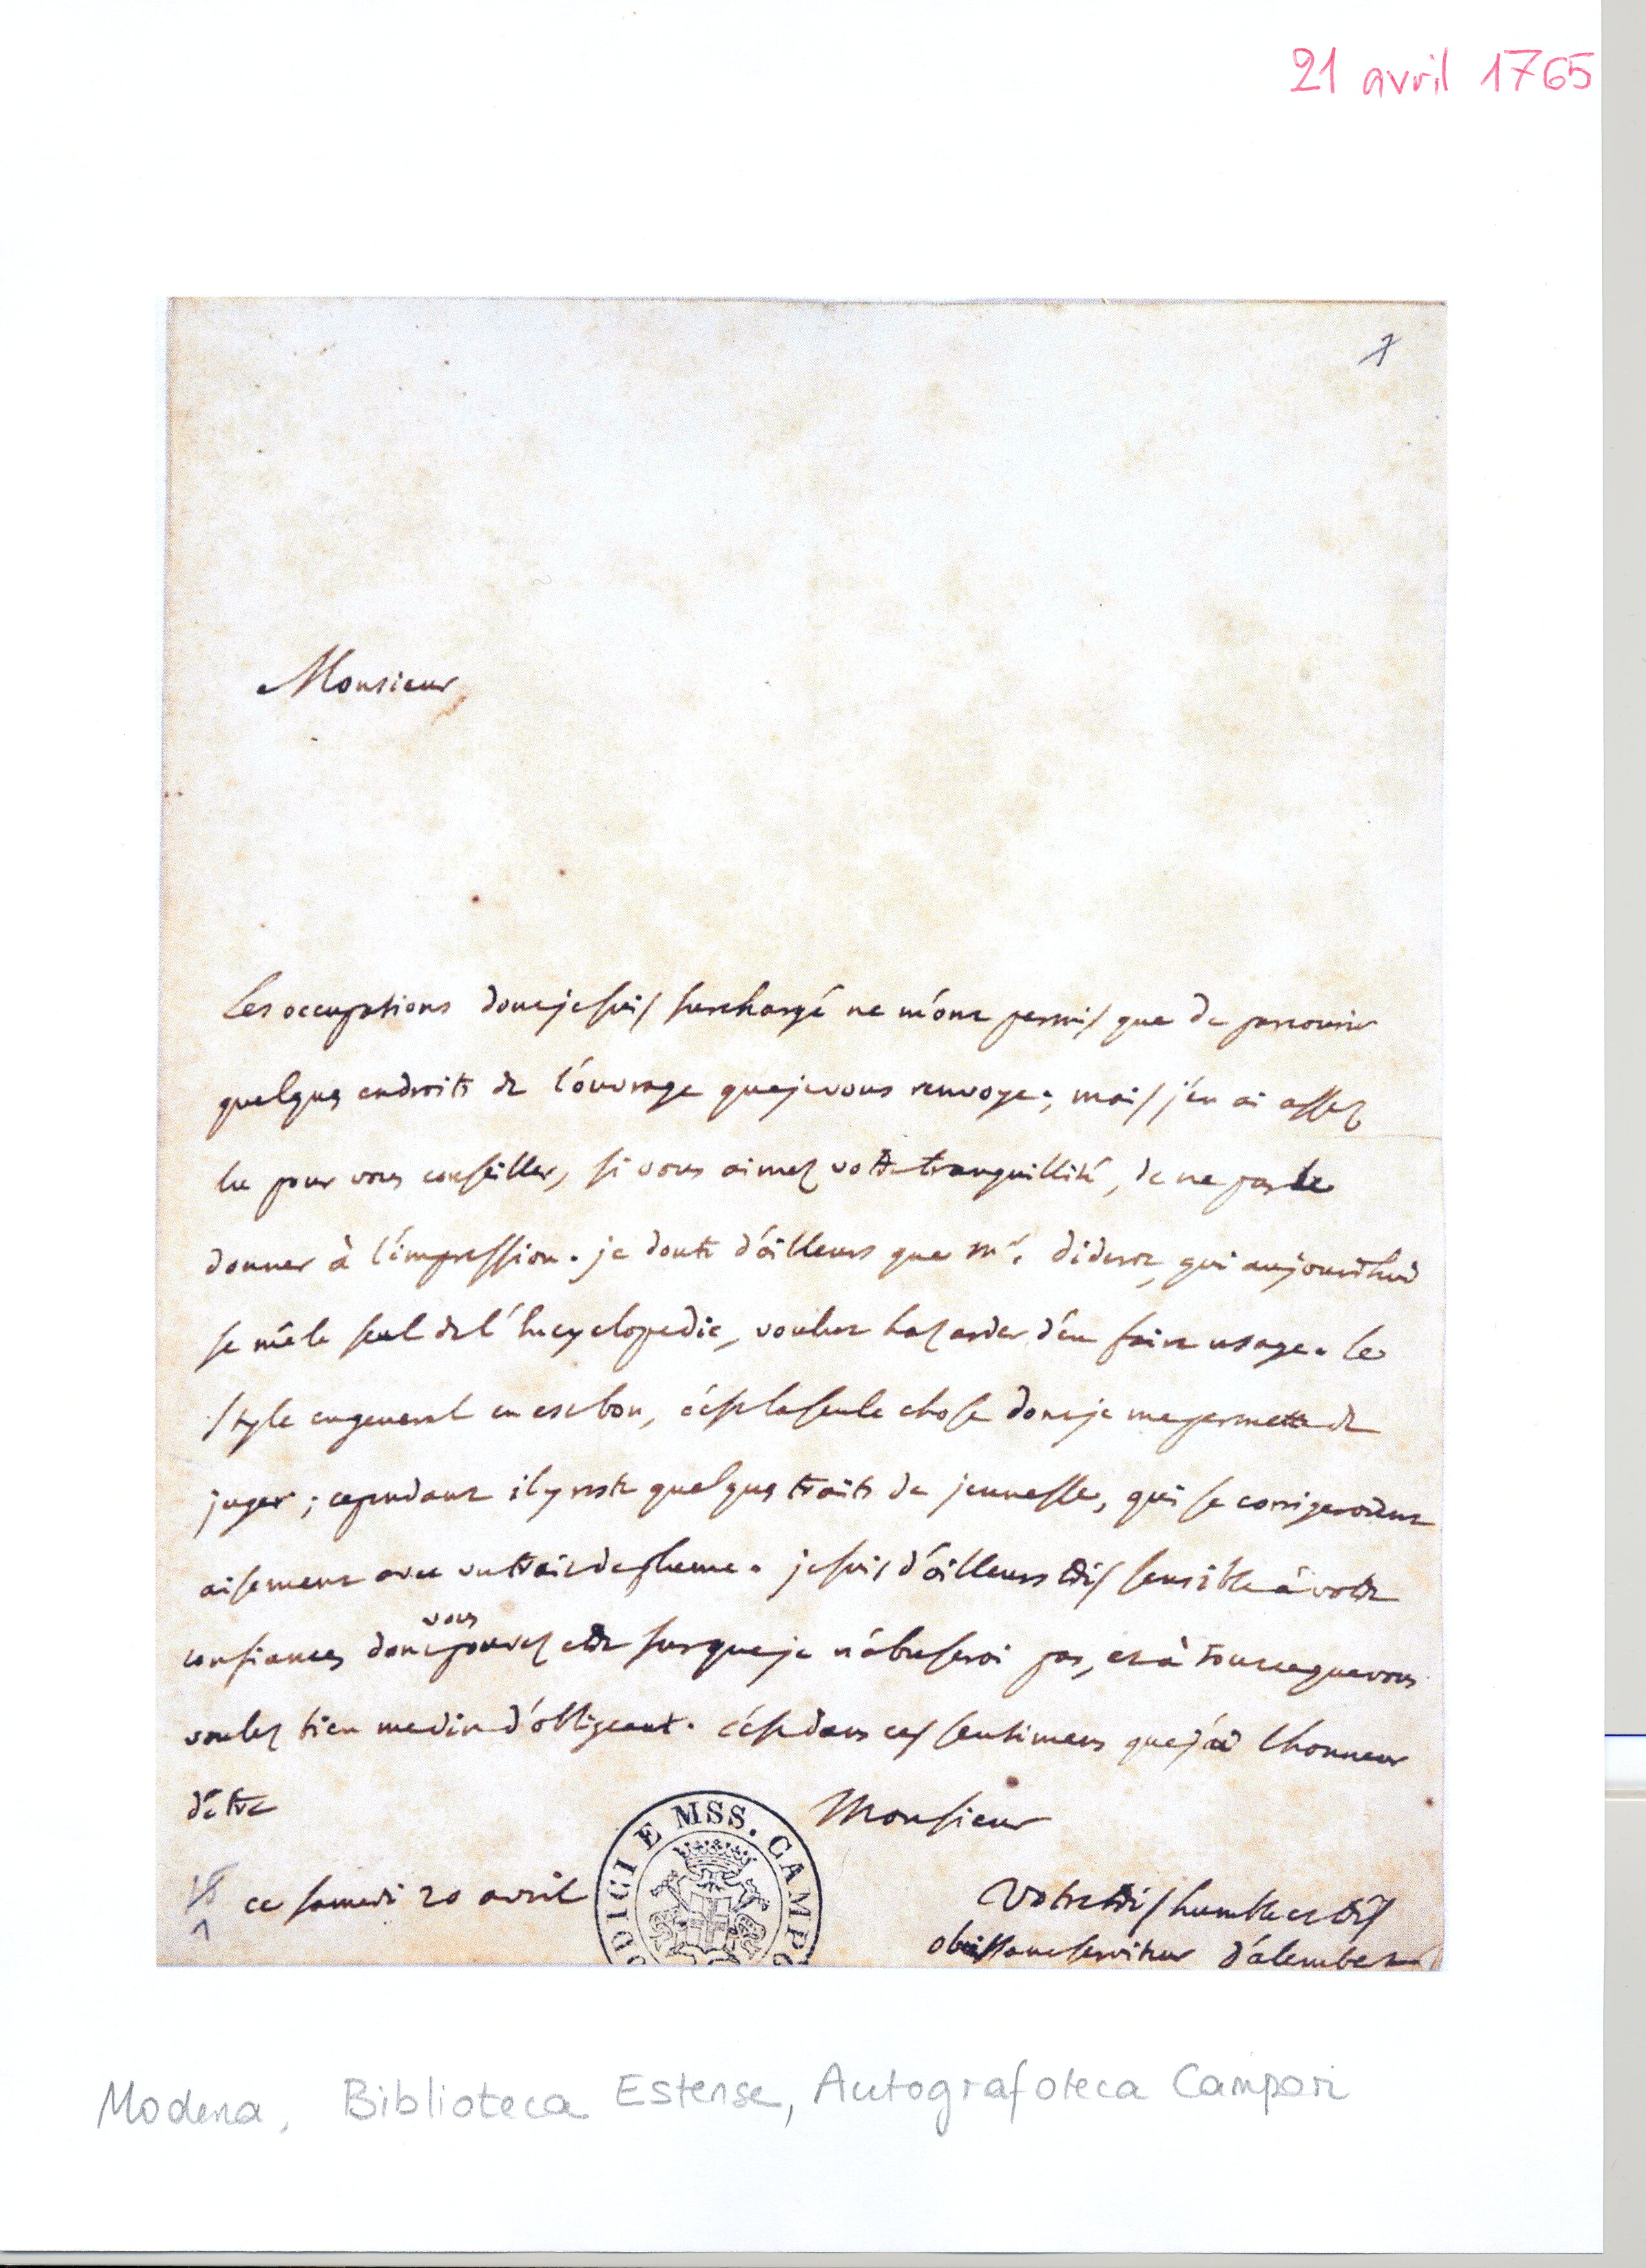 21 avril 1765
Monsieur
Les occupations dont je suis surchargé ne m'ont permis que de parcourir
quelques endroits de l'ouvrage que je vous renvoye; mais j'en ai assez
lu pour vous conseiller, si vous aimez votre tranquillité, de ne pas le
donner à l'impression. je doute d'ailleurs que Mr. diderot, qui aujourdhui
se mêle seul de l'Encyclopedie, voulut hazarder d'en faire usage. le
style en general en est bon, c'est la seule chose dont je me permette de
juger; cependant il y reste quelques traits de jeunesse, qui se corrigeroient
aisement avec un trait de plume. je suis d'ailleurs très sensible à votre
vous
confiance, dont pouvez etre sur que je n'abuserai pas, et à tout ce que vous
voulez bien me dire d'obligeant. c'est dans ces sentimens que j'ai l'honneur
d'être
Monsieur
ce samedi 20 avril
Votre très humble et très
obeissant serviteur d'alembert
DICI E MSS. CAMPO
Modena, Biblioteca Estense, Autografoteca Campori